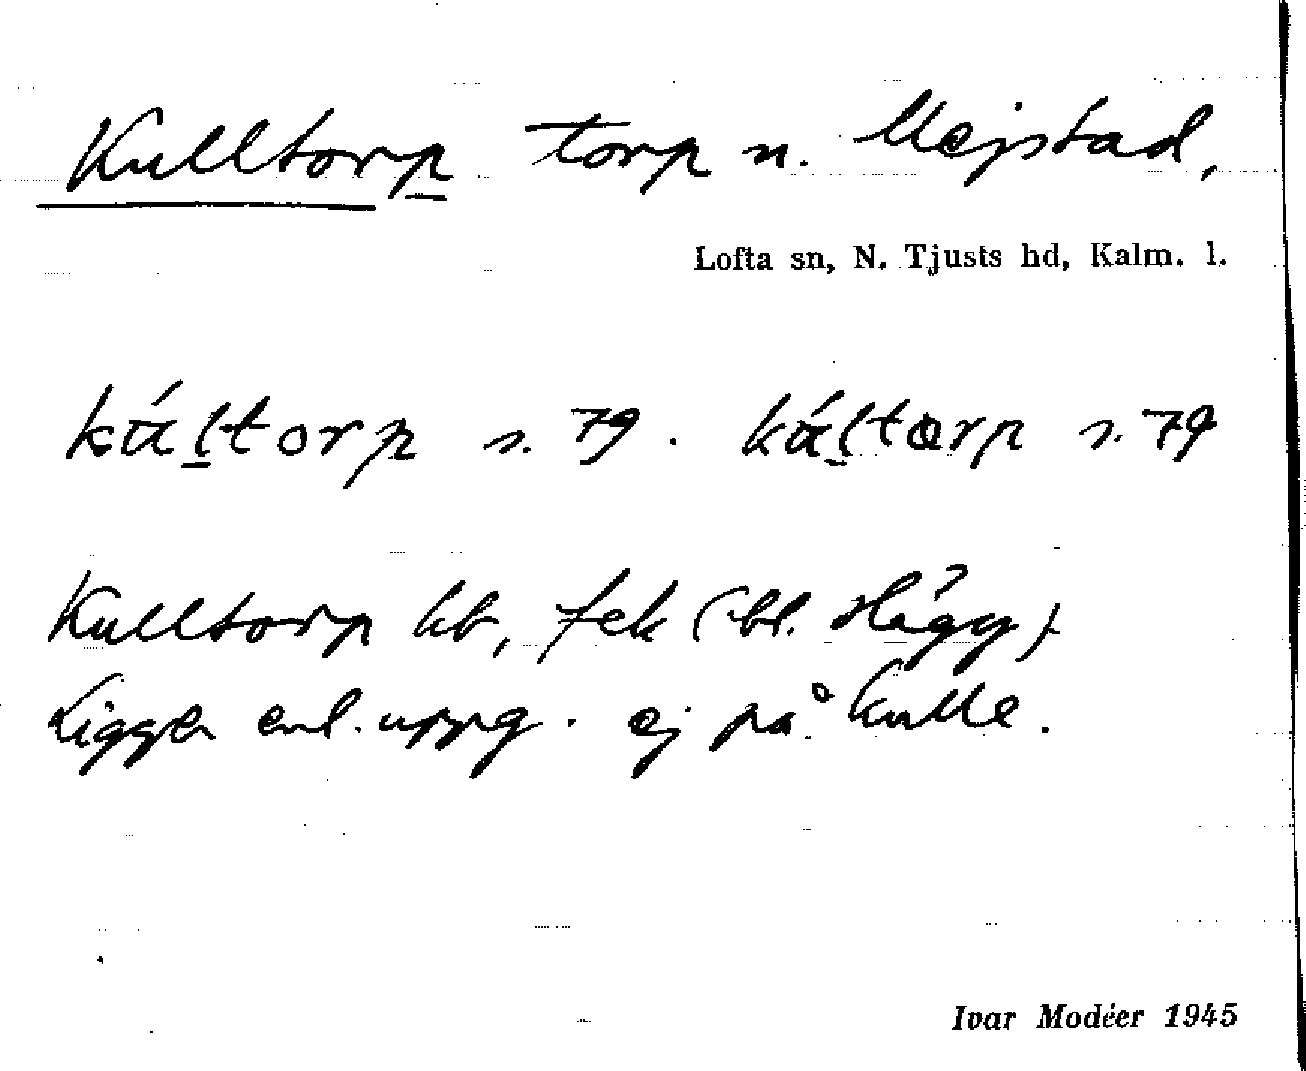 Kulltorp torp n. Mejstad,
Lofta sn, N. Tjusts hd, Kalm. l.
káltorp s. 79. káltorp s. 79
Kulltorp kb, fek (bl. Hägg).
Ligger enl. uppg. ej på kulle.
Ivar Modéer 1945